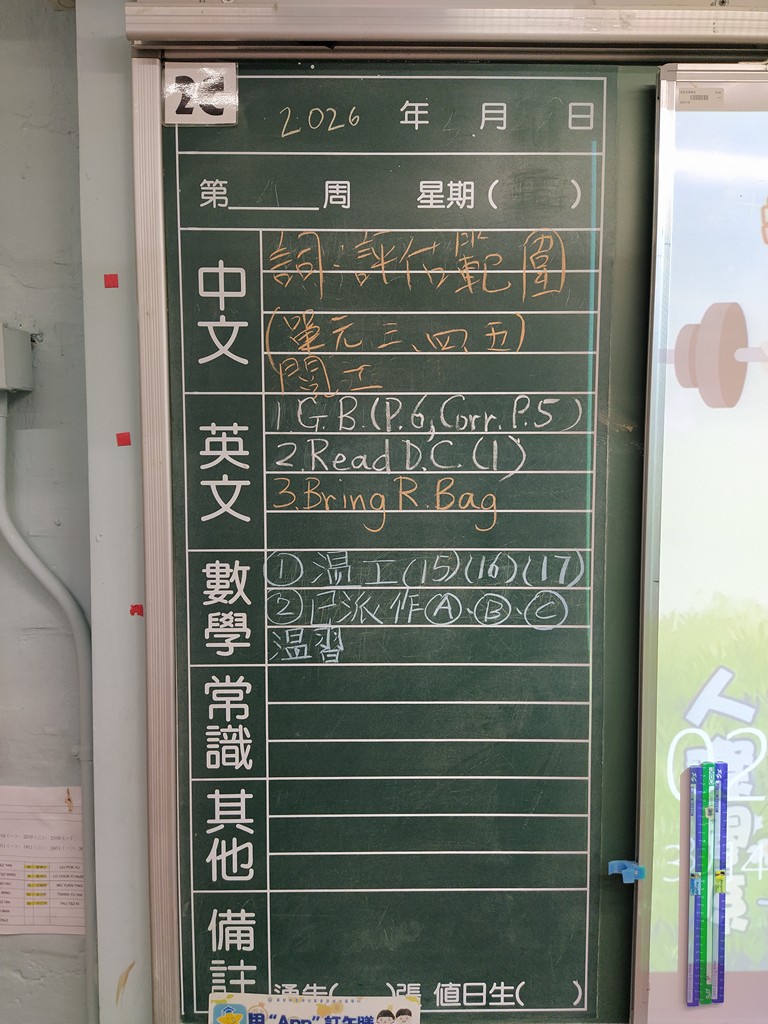 2C
2026 年 月 日
第 周 星期( )
中文
詞:評估範圍
(單元三、四、五)
閱工
英文
1.G.B.(P.6,Corr.P.5)
2.Read D.C.(1)
3.Bring R.Bag
數學
①温工(15)(16)(17)
②已派作Ⓐ、Ⓑ、Ⓒ
温習
常識
其他
備註
通告( )張 值日生( )
用“App”訂午膳